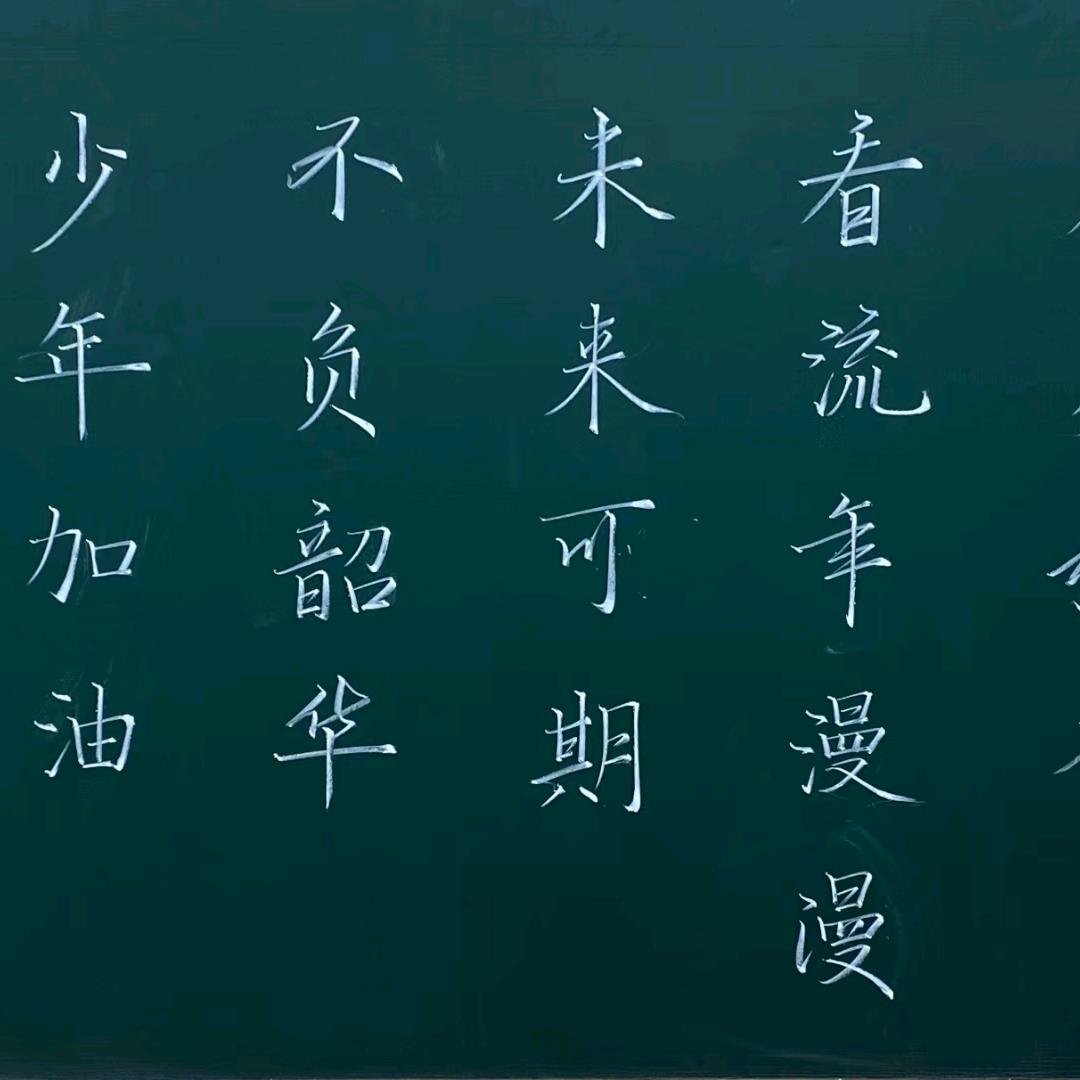 看流年漫漫
未来可期
不负韶华
少年加油